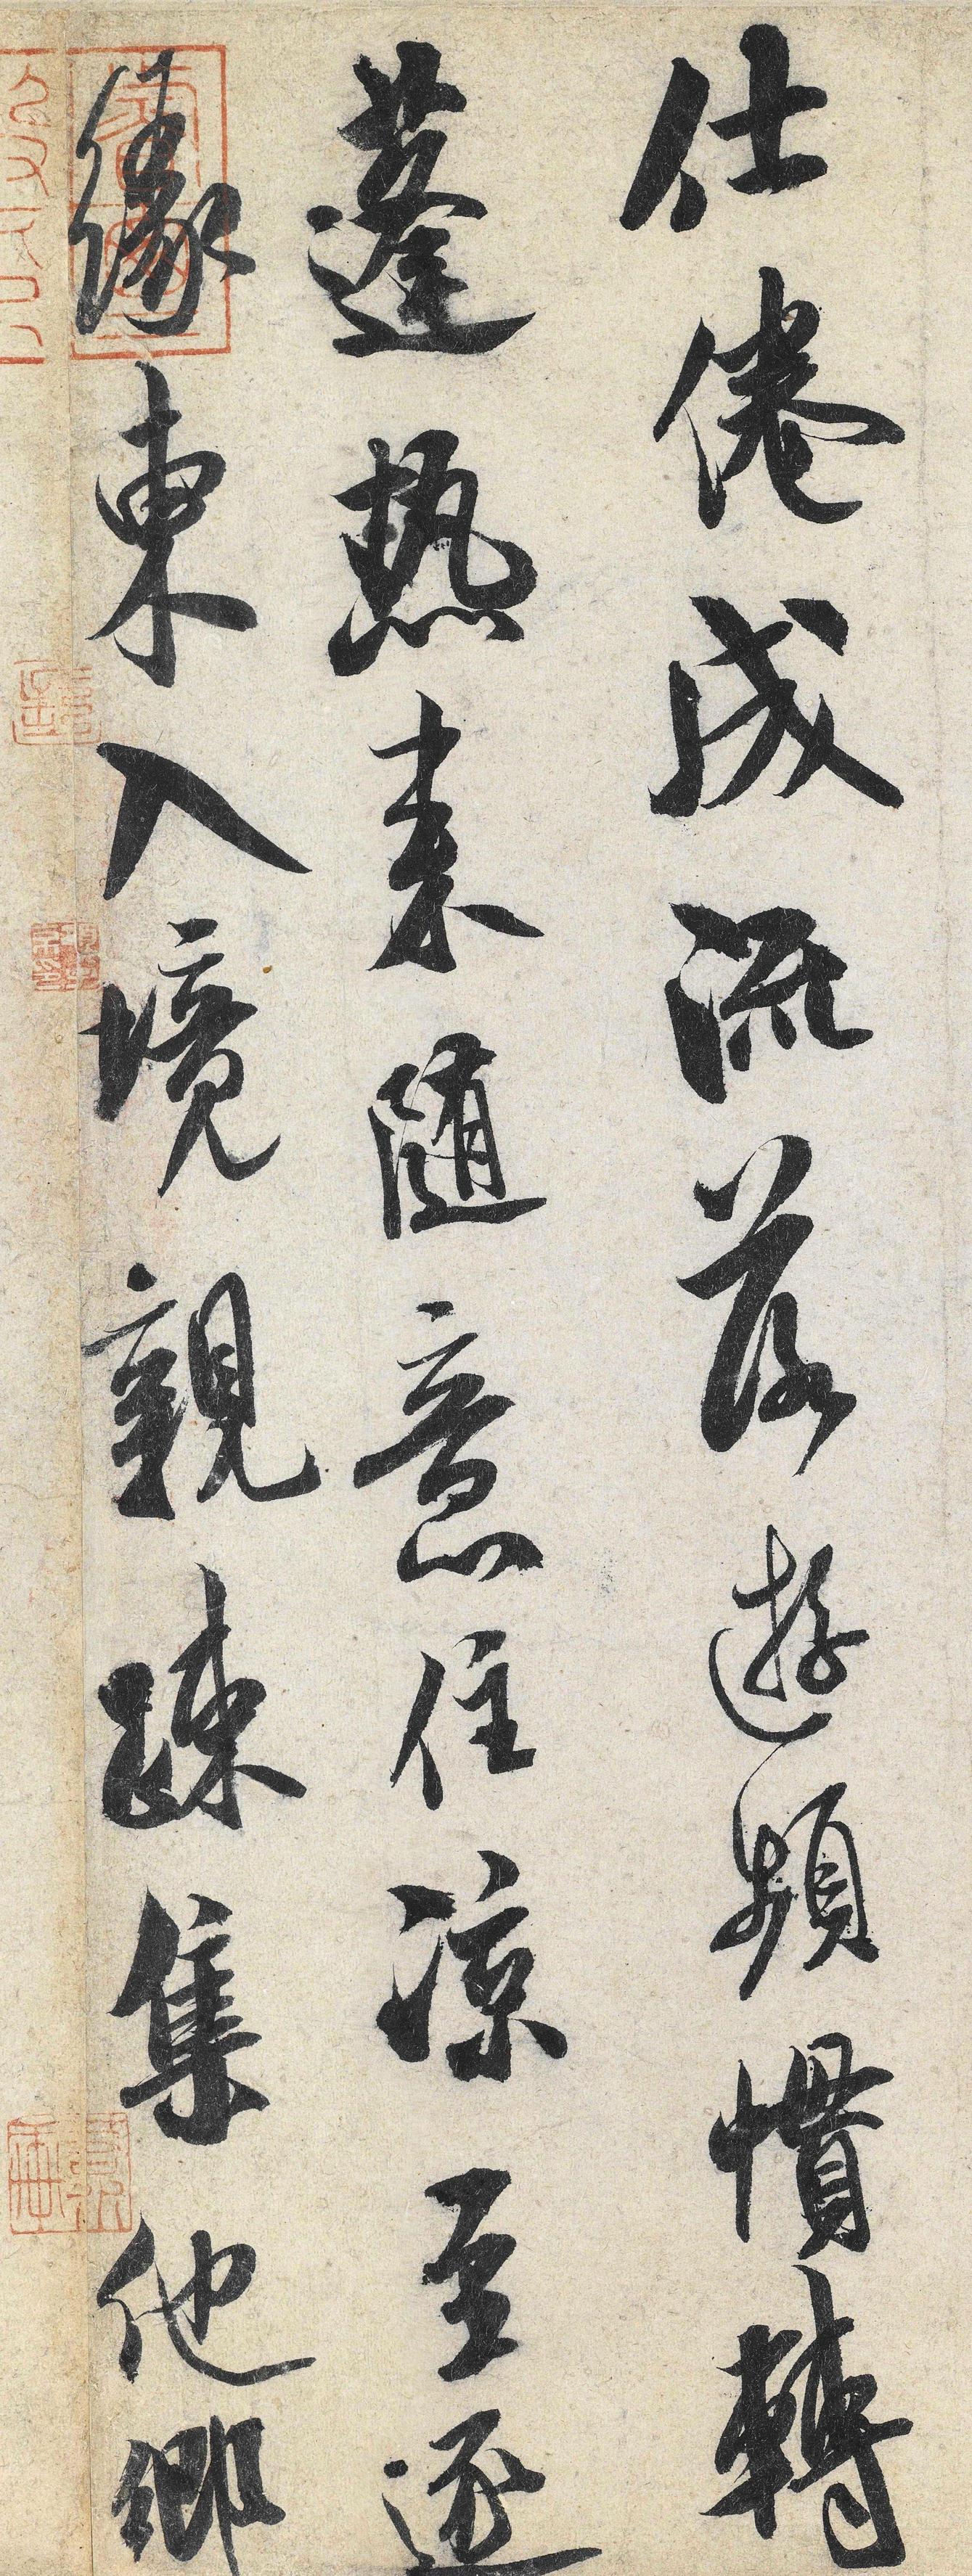 仕倦成流落遊頻慣轉
蓬熱來隨意住涼至逐
緣東入境親疎集他鄉